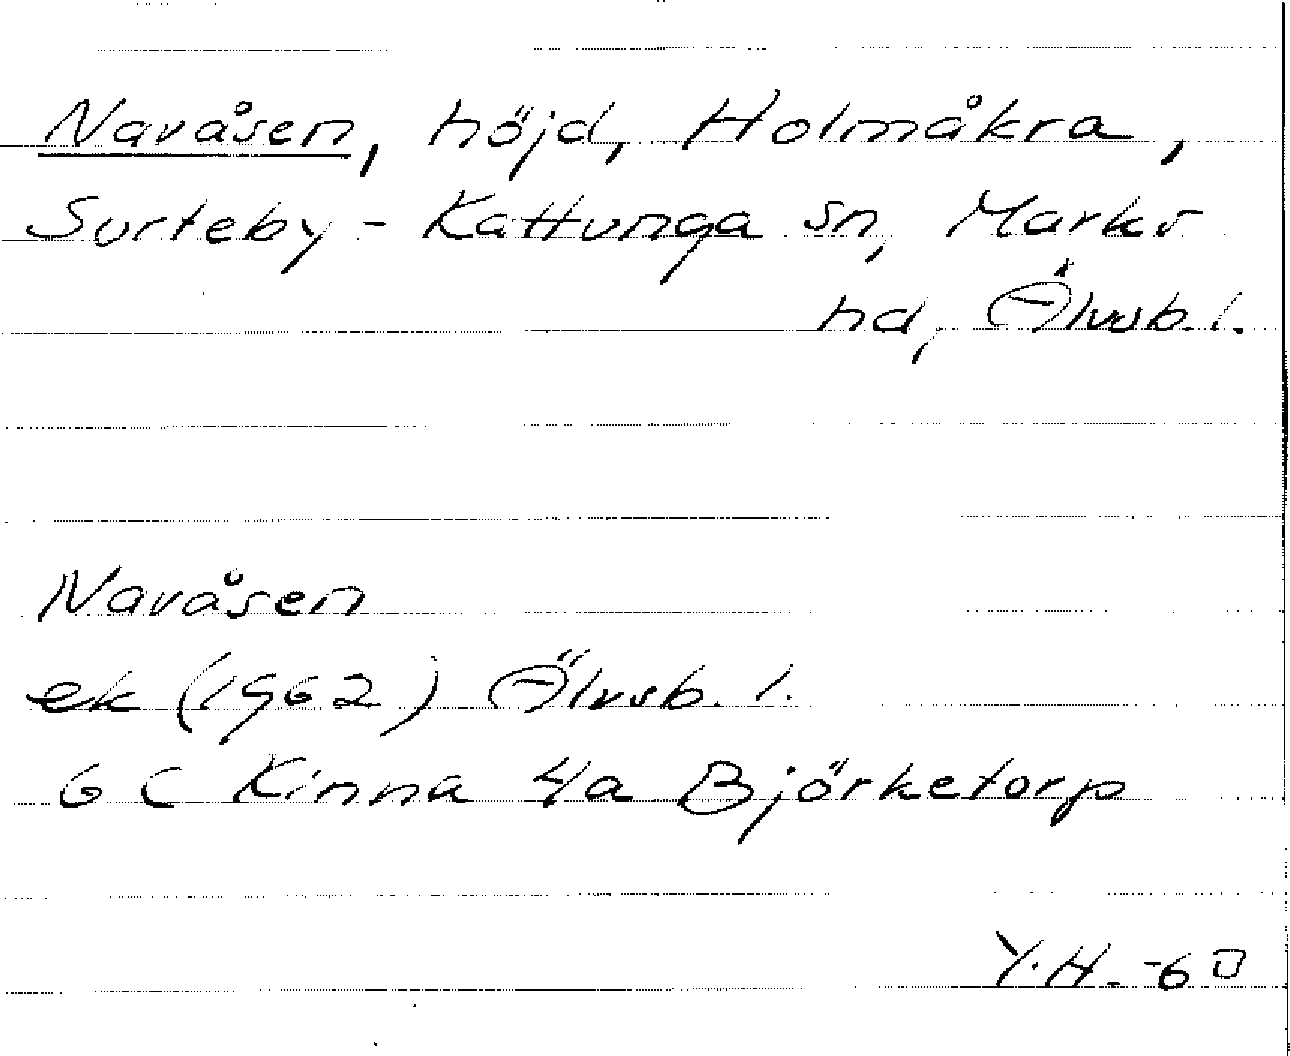 Navåsen, höjd, Holmåkra,
Surteby-Kattunga sn, Marks
hd, Älvsb. l.
Navåsen
ek (1962) Älvsb. l.
6 C Kinna 4a Björketorp
Y.H.